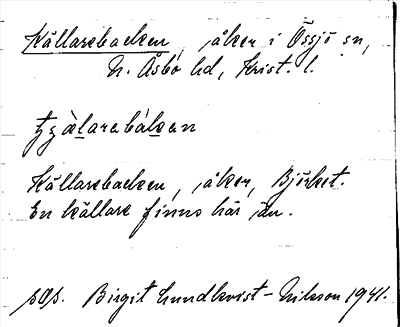 Källarebacken, åker i Össjö sn,
N. Åsbo hd, Krist. l.
Källarebacken, åker, Björket.
En källare finns här än.
pOp. Birgit Lundkvist-Nilsson 1941.